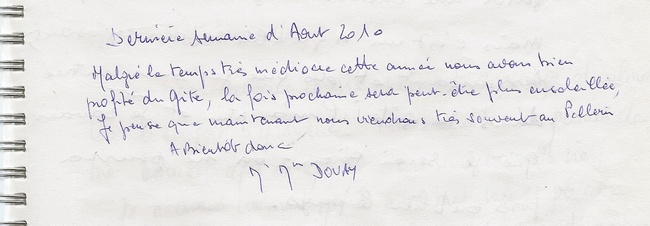 Dernière semaine d'Aout 2010
Malgré le temps très médiocre cette année nous avons bien
profité du Gîte, la fois prochaine sera peut-être plus ensoleillée,
Je pense que maintenant nous viendrons très souvent au Pellerin
A Bientôt donc
Mr Mme DOUAY